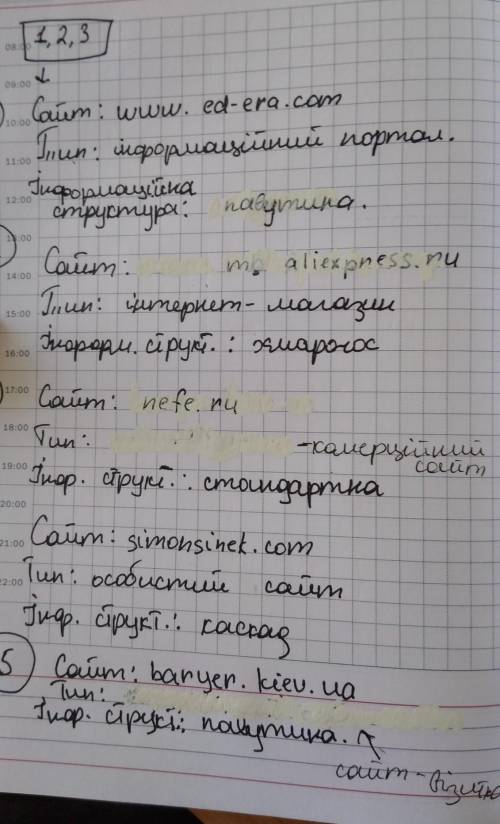 1, 2, 3
08:00
09:00
Сайт: www. ed-era.com
10:00
Тип: інформаційний портал.
11:00
Інформаційна
12:00
структура: павутина.
13:00
Сайт: m. aliexpress.ru
14:00
Тип: інтернет-магазин
15:00
Інформ. структ.: хмарочос
16:00
17:00
Сайт: nefe.ru
18:00
Тип: -комерційний
сайт
19:00
Інф. структ.: стандартна
20:00
Сайт: simonsinek.com
21:00
Тип: особистий сайт
22:00
Інф. структ.: каскад
5 Сайт: baryer.kiev.ua
Тип:
Інф. структ.: павутина.
сайт-візитка